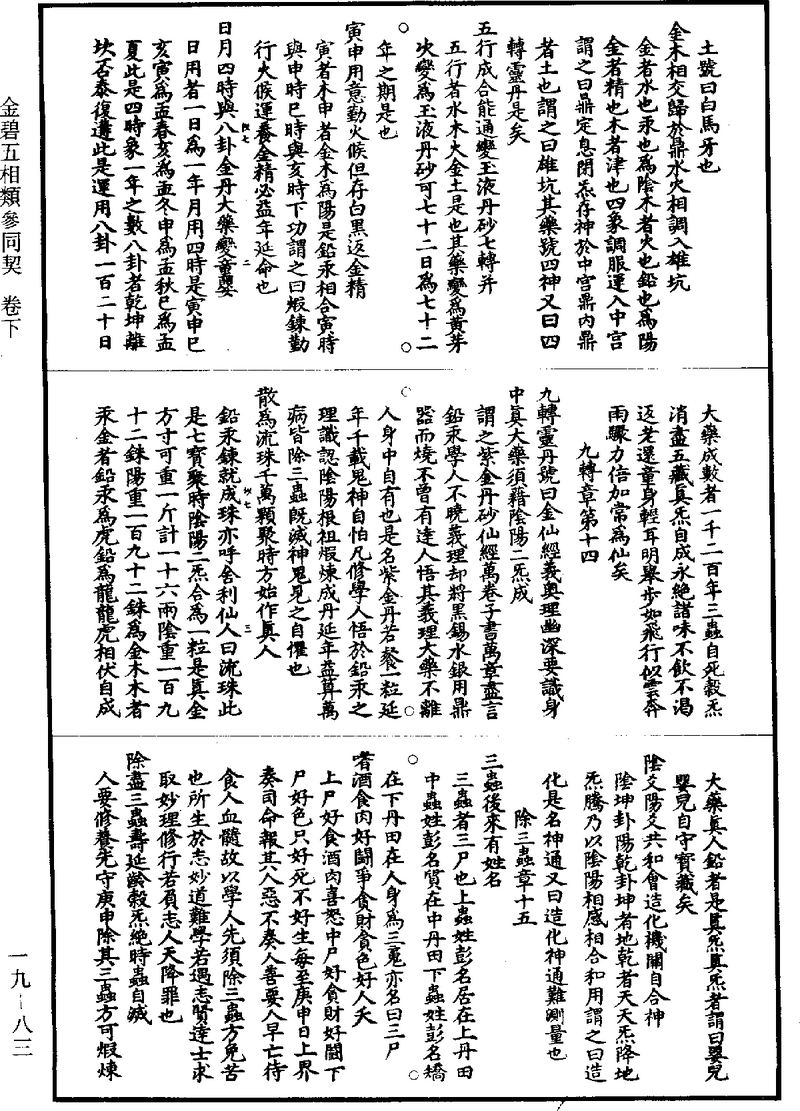 土號曰白馬牙也
金木相交歸於鼎水火相調入雄坑
金者水也汞也為陰木者火也鉛也為陽
金者精也木者津也四象調服運入中宮
謂之曰鼎定息閉炁存神於中宮鼎內鼎
者土也謂之曰雄坑其藥號四神又曰四
轉靈丹是矣
五行成合能通變玉液丹砂七轉并
五行者水木火金土是也其藥變為黃芽
次變為玉液丹砂可七十二日為七十二
年之期是也
寅申用意勤火候但存白黑返金精
寅者木申者金木為陽是鉛汞相合寅時
與申時巳時與亥時下功謂之曰煅鍊勤
行火候運養金精必益年延命也
日月四時與八卦金丹大藥變童嬰
日用者一日為一年月用四時是寅申巳
亥寅為孟春亥為孟冬申為孟秋巳為孟
夏此是四時象一年之數八卦者乾坤離
坎否泰復遘此是運用八卦一百二十日
大藥成數者一千二百年三蟲自死穀炁
消盡五藏真炁自成永絕諸味不飲不渴
返老還童身輕耳明舉步如飛行似雲奔
雨驟力倍加常為仙矣
九轉章第十四
九轉靈丹號曰金仙經義奧理幽深要識身
中真大藥須藉陰陽二炁成
謂之紫金丹砂仙經萬卷子書萬章盡言
鉛汞學人不曉義理却將黑錫水銀用鼎
器而燒不曾有達人悟其義理大藥不離
人身中自有也是名紫金丹若餐一粒延
年千載鬼神自怕凡修學人悟於鉛汞之
理識認陰陽根祖煅煉成丹延年益算萬
病皆除三蟲既滅神鬼見之自懼也
散為流珠千萬顆聚時方始作真人
鉛汞鍊就成珠亦呼舍利仙人曰流珠此
是七寶聚時陰陽二炁合為一粒是真金
方寸可重一斤計一十六兩陰重一百九
十二銖陽重一百九十二銖為金木木者
汞金者鉛汞為虎鉛為龍龍虎相伏自成
大藥真人鉛者是真炁真炁者謂曰嬰兒
嬰兒自守寶藏矣
陰爻陽爻共和會造化機關自合神
陰坤卦陽乾卦坤者地乾者天天炁降地
炁騰乃以陰陽相感相合和用謂之曰造
化是名神通又曰造化神通難測量也
除三蟲章十五
三蟲後來有姓名
三蟲者三尸也上蟲姓彭名居在上丹田
中蟲姓彭名質在中丹田下蟲姓彭名矯
在下丹田在人身為三寃亦名曰三尸
嗜酒食肉好鬭爭貪財貪色好人夭
上尸好食酒肉喜怒中尸好貪財好鬪下
尸好色只好死不好生每至庚申日上界
奏司命報其人惡不奏人善要人早亡待
食人血髓故以學人先須除三蟲方免苦
也所生於志妙道難學若遇志賢達士求
取妙理修行若負志人天降罪也
除盡三蟲壽延齡穀炁絕時蟲自滅
人要修養先守庚申除其三蟲方可煅煉
金碧五相類參同契 卷下
一九－八三